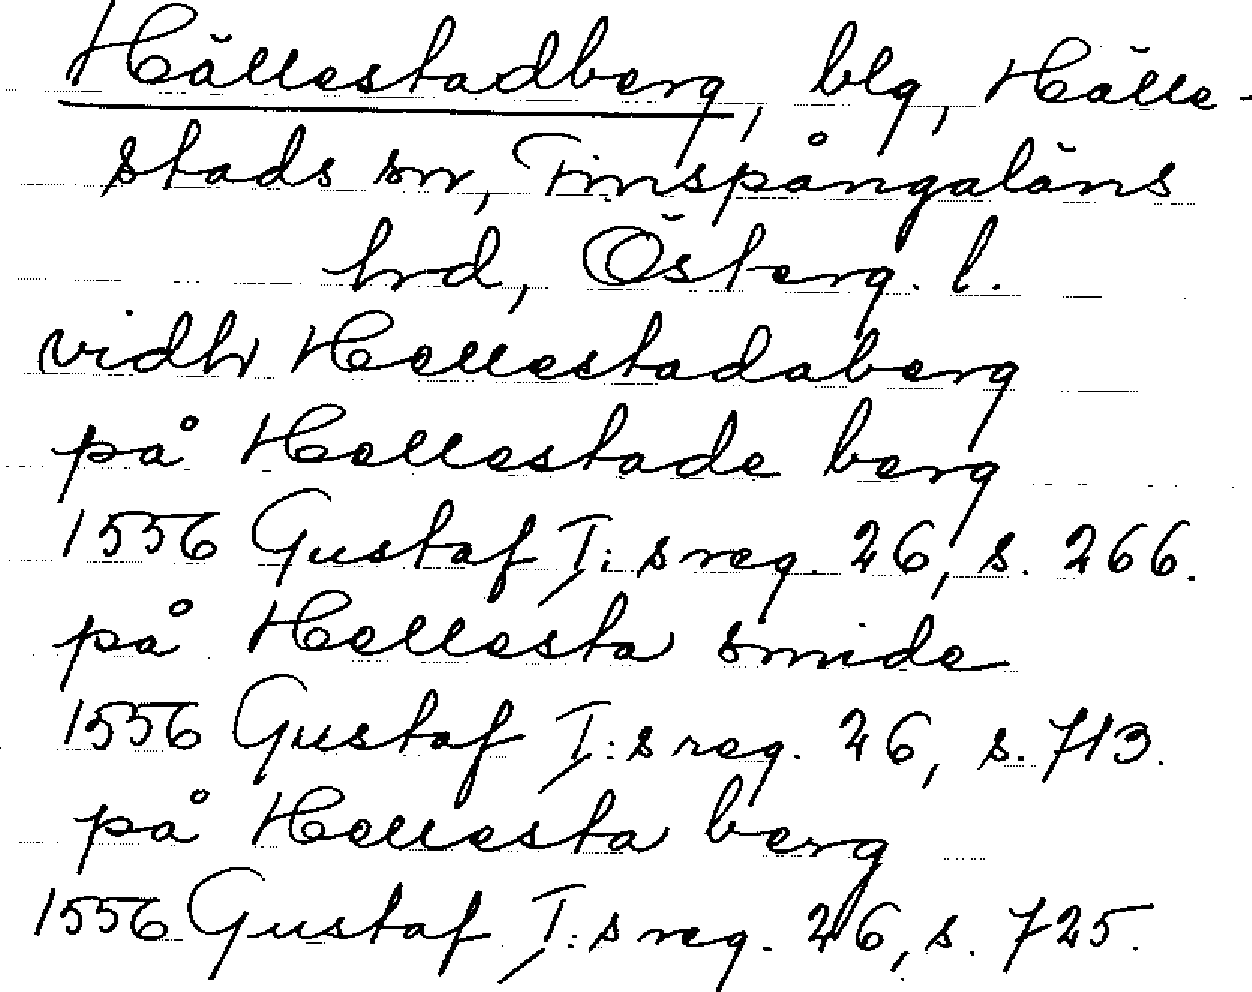 Hällestadberg, blg, Hälle-
stads sn, Finspångaläns
hrd, Österg. l.
vidh Hellestadaberg
på Hellestade berg
1556 Gustaf I:s reg. 26, s. 266.
på Hellesta smide
1556 Gustaf I:s reg. 26, s. 713.
på Hellesta berg
1556 Gustaf I:s reg. 26, s. 725.